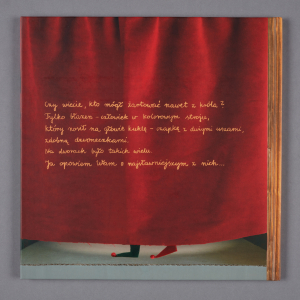 Czy wiecie, kto mógł żartować nawet z króla?
Tylko błazen - człowiek w kolorowym stroju,
który nosił na głowie kuklę - czapkę z dużymi uszami,
zdobną dzwoneczkami.
Na dworach było takich wielu.
Ja opowiem Wam o najsławniejszym z nich...